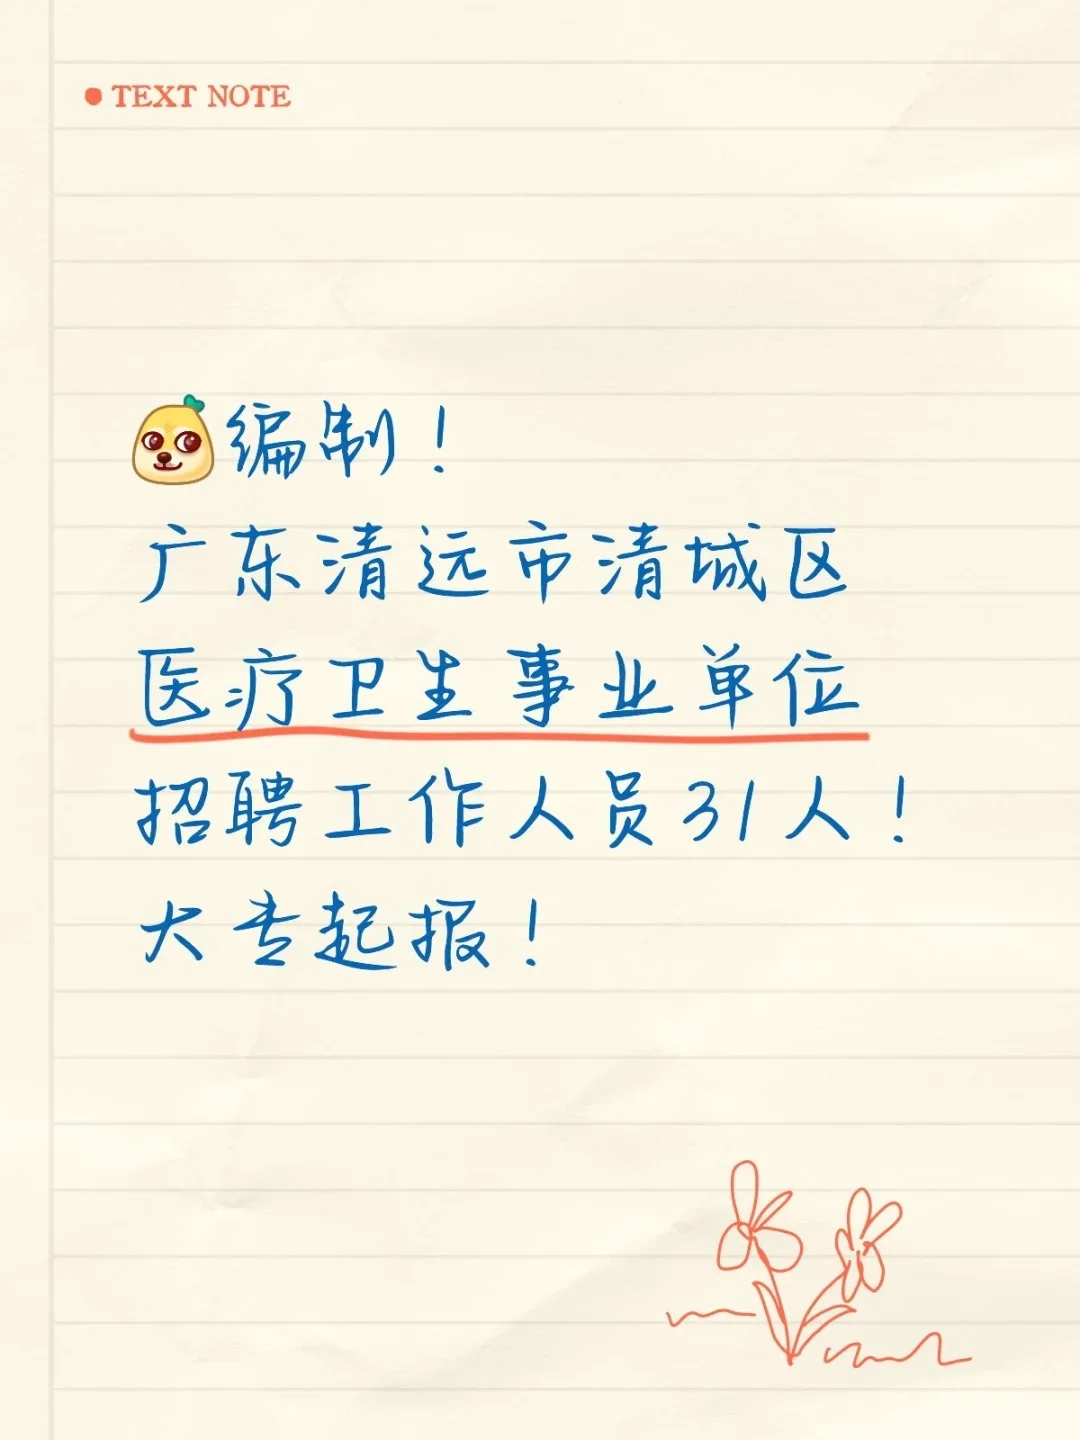 TEXT NOTE
编制！
广东清远市清城区
医疗卫生事业单位
招聘工作人员31人！
大专起报！